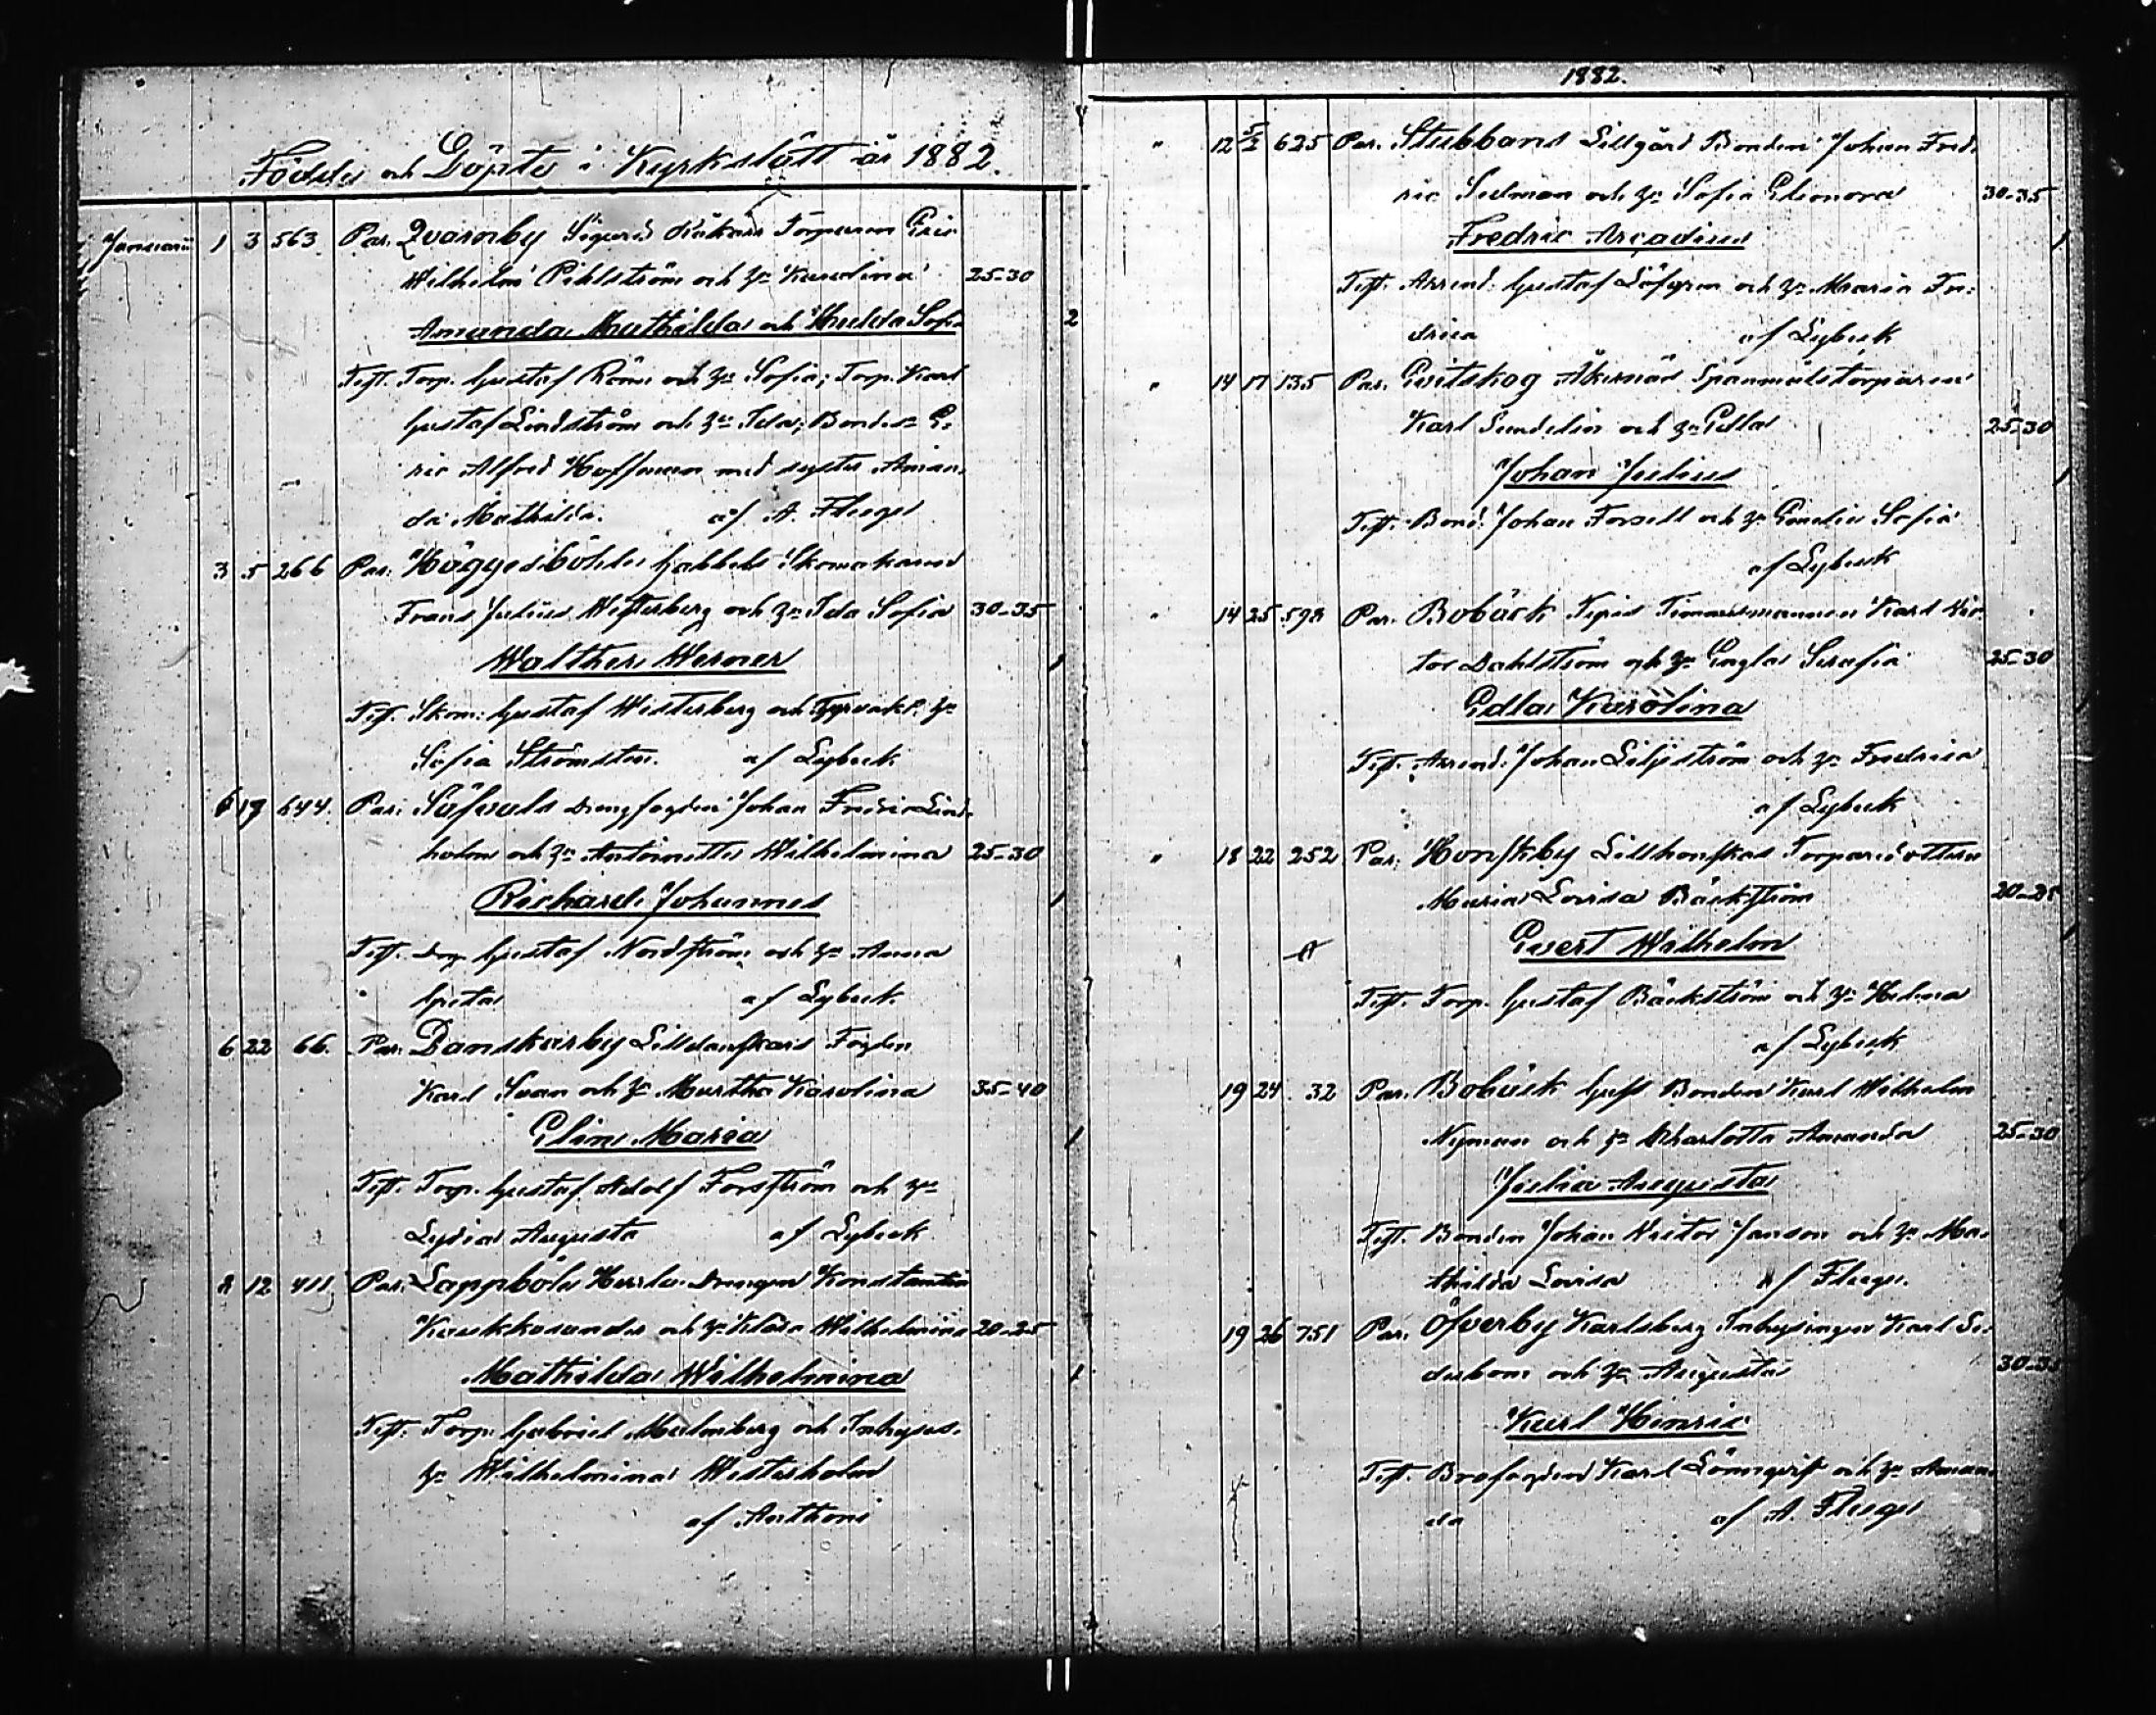 Födde och Döpte i Kyrkslätt år 1882.
Januarii 1 3 563 Par. Qvarnby Sigurds Torparen Eric
Wilhelm Pihlström och h: Karolina 25-30
Amanda Mathilda och Hulda Sofia 2
Test. Torp. Gustaf och h: Sofia; Torp. Karl
Gustaf Lindström och h: Ida; Bondes. E.
ric Alfred Hoffman med syster Aman-
da Mathilda. af A. Fleege
3 5 266 Par. Häggesböhle Gabbels Skomakaren
Frans Julius Westerberg och h: Ida Sofia 30-35
Walther Werner 1
Test. Skom: Gustaf Westerberg och h:
Sofia Strömsten. af Lybeck
6 17 644. Par. Säfvals Drengfogden Johan Fredric Lind-
holm och h: Antoinette Wilhelmina 25-30
Richard Johannes 1
Test. Dreg. Gustaf Nordström och h: Anna
Greta af Lybeck.
6 22 66. Par. Danskarby Lilldanskars Fogden
Karl Svan och h: Martha Karolina 35-40
Elin Maria 1
Test. Torp. Gustaf Adolf Forsström och h:
Lydia Augusta af Lybeck
8 12 411 Par. Lappböle Härla Drengen Konstantin
och h: Klara Wilhelmina 20-25
Mathilda Wilhelmina 1
Test. Torp. Gabriel Malmberg och Inhyses.
h: Wilhelmina Westerholm
af Anthoni
1882.
" 12 5/2 625 Par. Stubbans Lillgård Bonden Johan Fred-
ric Selman och h: Sofia Eleonora 30-35
Fredric Arcadius 1
Test. Arrend. Gustaf Löfgren och h: Maria Fre-
drica af Lybeck
" 14 17 135 Par. Evitskog Åkernäs Spanmålstorparen
Karl Sundelin och h: Edla 25-30
Johan Julius 1
Test. Bond. Johan Forsell och h: Emelie Sofia
af Lybeck
" 14 25 598 Par. Bobäck Timmermannen Karl Vic-
tor Dahlström och h: Engla Serafia 25-30
Edla Karolina 1
Test. Arrend. Johan Liljström och h: Fredrica
af Lybeck
" 18 22 252 Par. Honskby Lillhonskas Torparedottern
Maria Lovisa Bäckström 20-25
Evert Wilhelm 1
Test. Torp. Gustaf Bäckström och h: Helena
af Lybeck
19 24 32 Par. Bobäck Gust Bonden Karl Wilhelm
Nyman och h: Charlotta Amanda 25-30
Julia Augusta
Test. Bonden Johan Victor Janson och h: Ma-
thilda Lovisa af Fleege.
19 26 751 Par. Öfverby Karlsberg Inhysingen Karl Se-
derbom och h: Augusta 30-35
Karl Hinric
Test. Brofogden Karl Lönnqvist och h: Aman-
da af A. Fleege